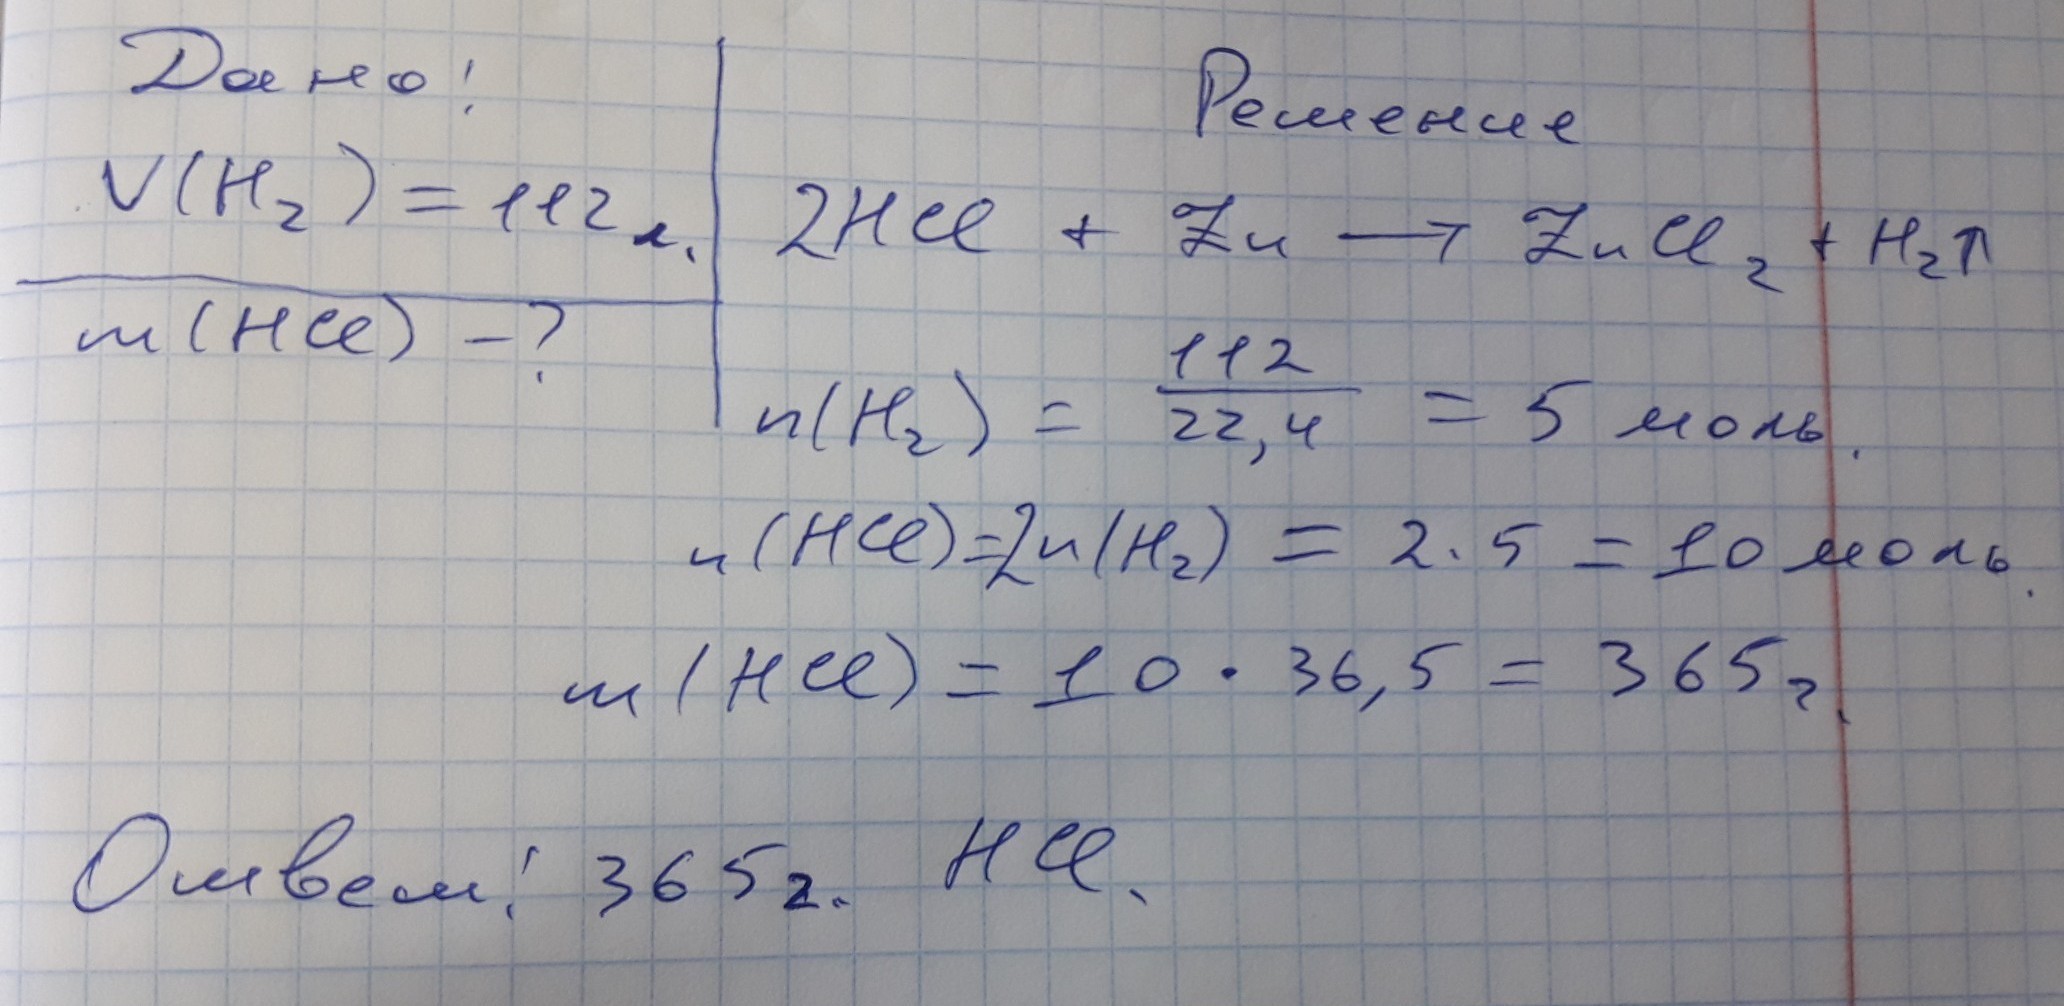 Дано:
V(H₂) = 112 л.
m(HCl) - ?
Решение
2HCl + Zn → ZnCl₂ + H₂↑
n(H₂) = 112/22,4 = 5 моль.
n(HCl) = 2n(H₂) = 2·5 = 10 моль.
m(HCl) = 10 · 36,5 = 365 г.
Ответ: 365 г. HCl.